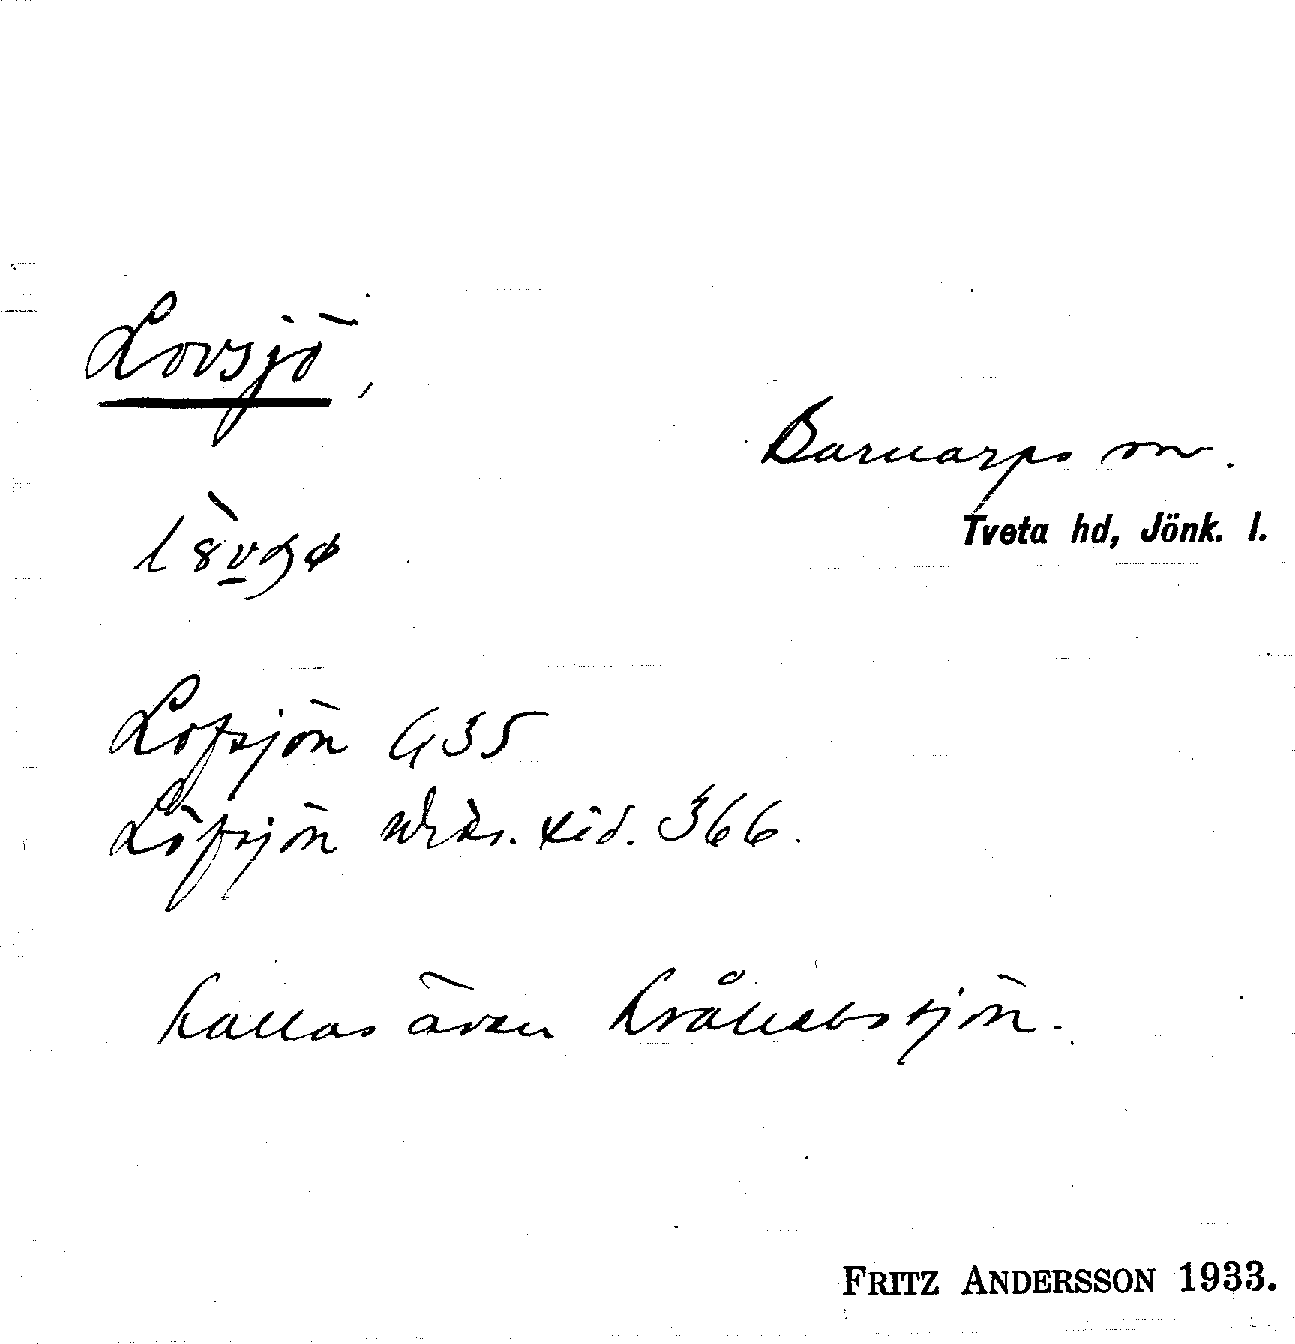 Lovsjö,
Barnarps sn.
Tveta hd, Jönk. l.
Lofsjön G35
Löfsjön sid. 366.
kallas även Kråkebosjön.
FRITZ ANDERSSON 1933.